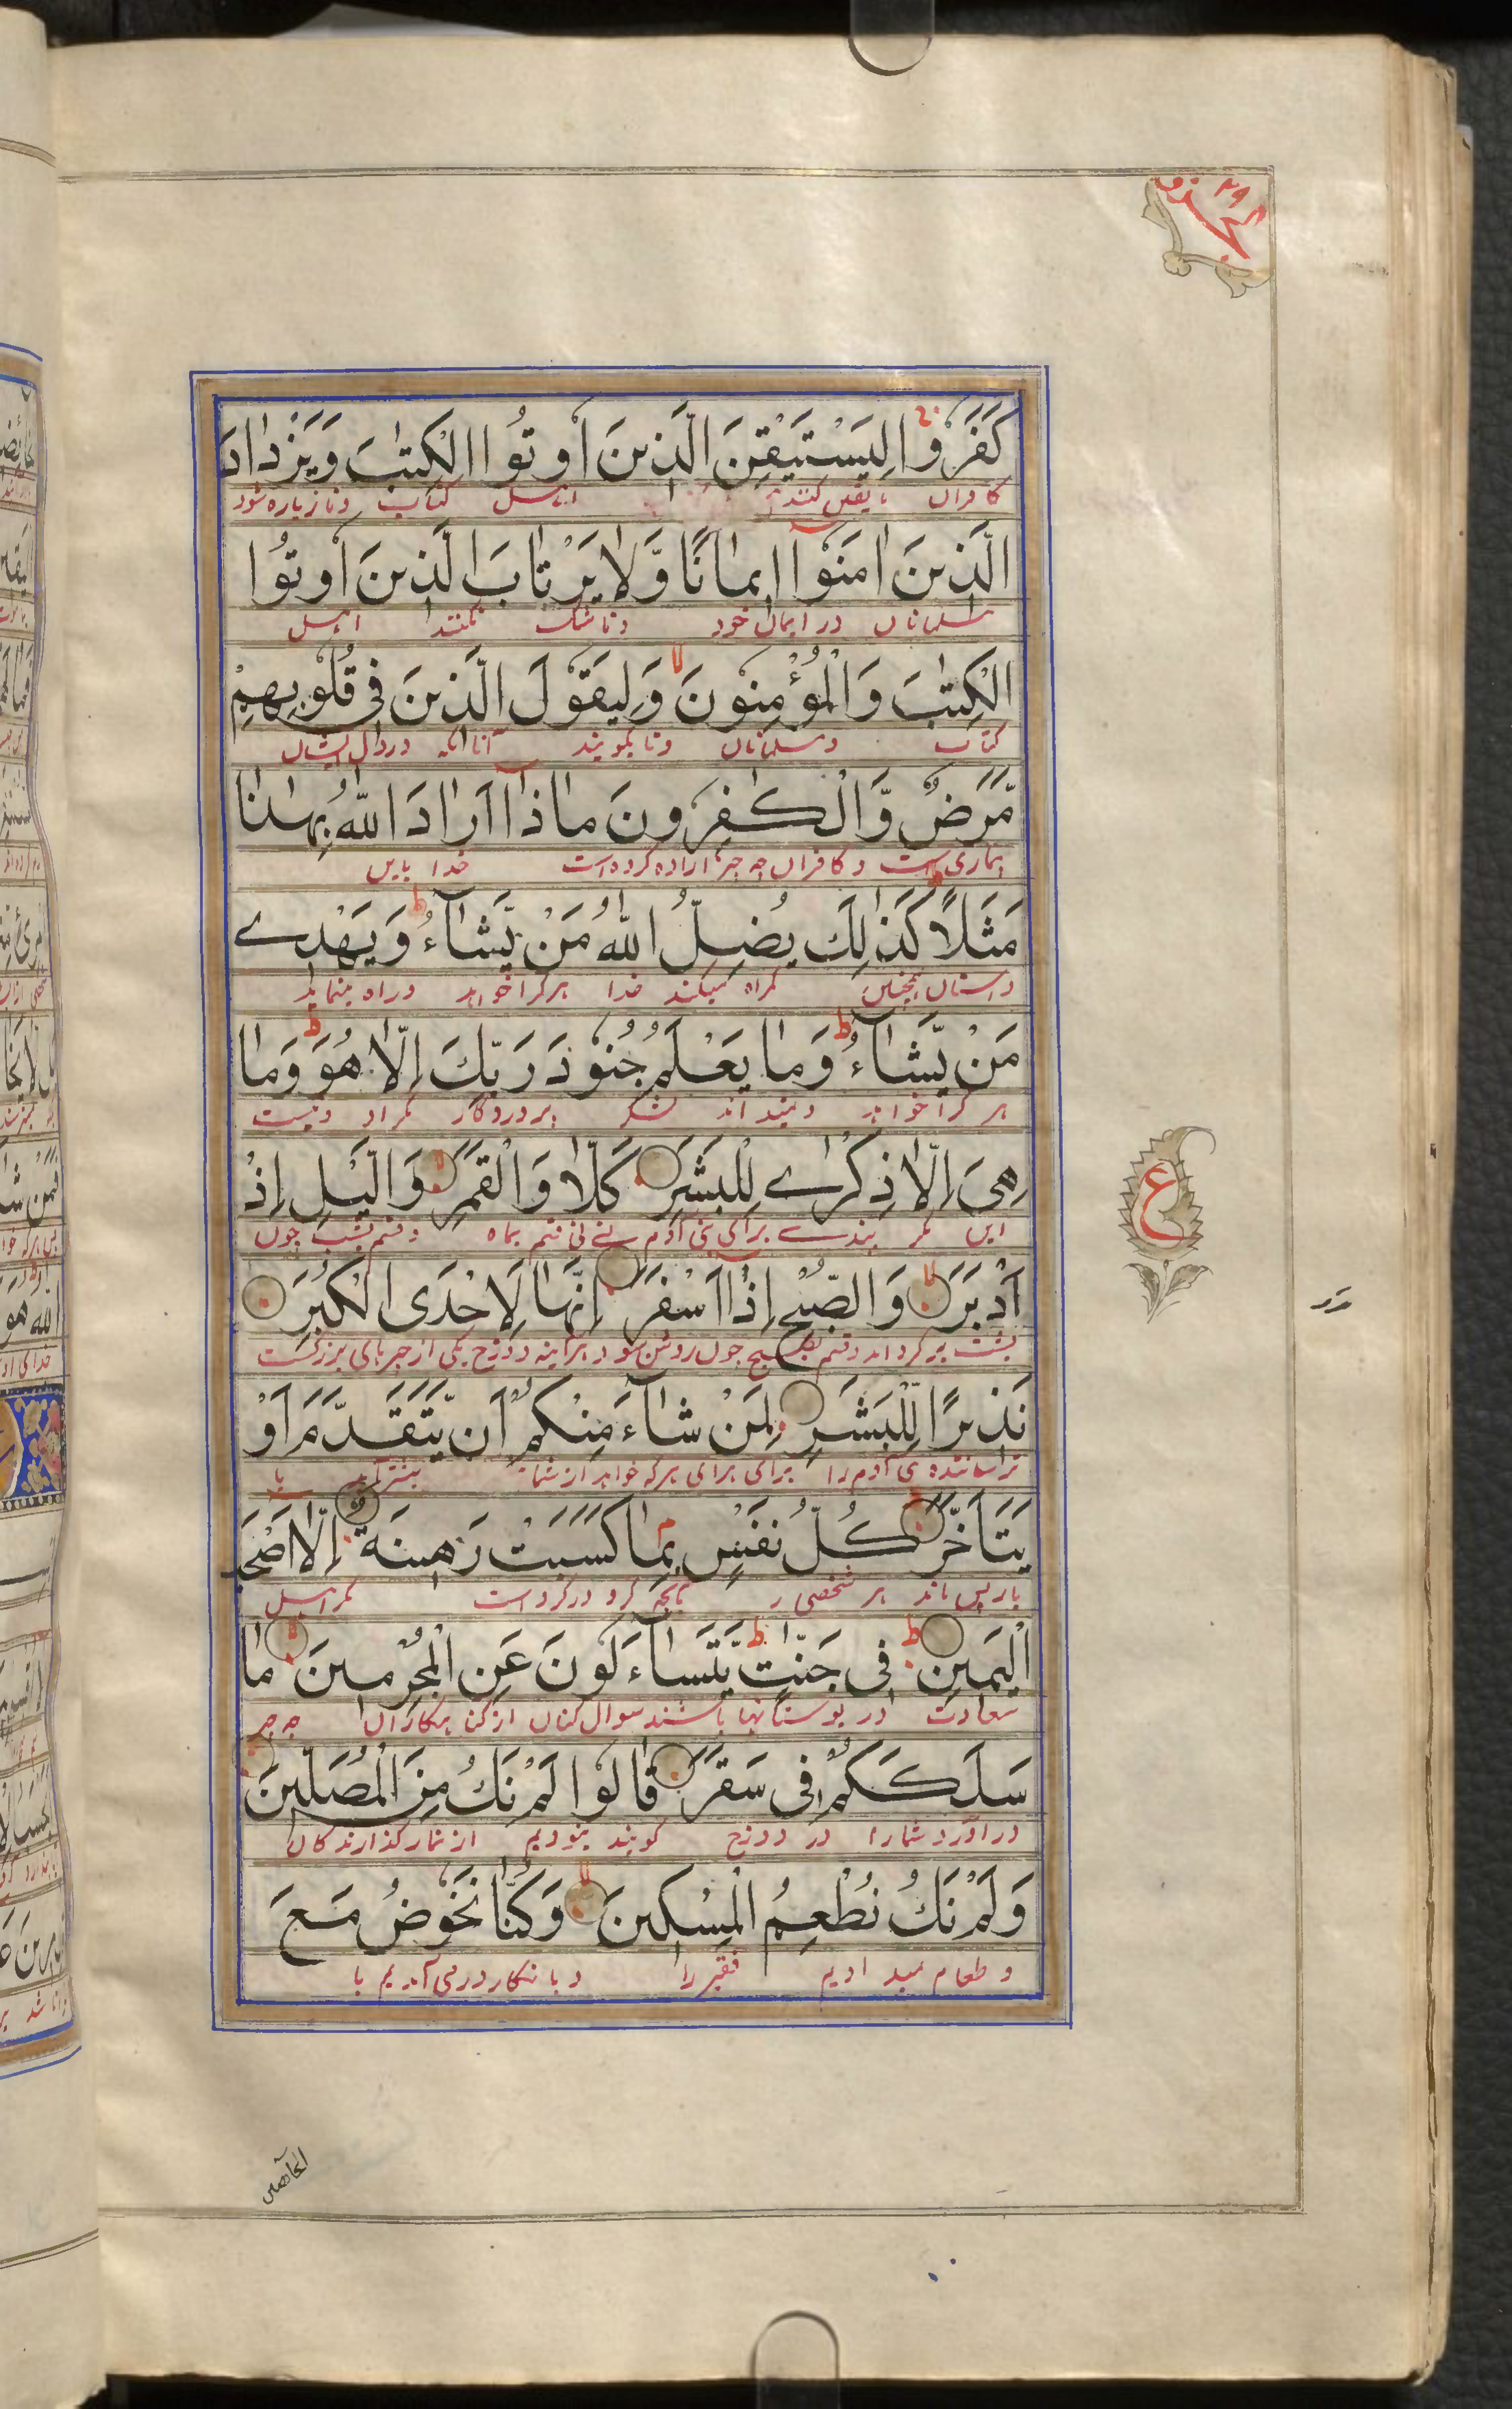 الجزو ٢٩
كَفَرُوا لِيَسْتَيْقِنَ الَّذِينَ أُوتُوا الْكِتٰبَ وَيَزْدَادَ
کافران تا یقین کنند اهل کتاب وتا زیاده شود
الَّذِينَ اٰمَنُوٓا اِيمَانًا وَّلَا يَرْتَابَ الَّذِينَ أُوتُوا
مسلمانان در ایمان خود وتا شک نکنند اهل
الْكِتٰبَ وَالْمُؤْمِنُونَ لا وَلِيَقُولَ الَّذِينَ فِي قُلُوبِهِمْ
کتاب ومسلمانان وتا بگویند آنانکه در دل ایشان
مَّرَضٌ وَّالْكٰفِرُونَ مَاذَآ اَرَادَ اللّٰهُ بِهٰذَا
بیماری است و کافران چه چیز اراده کرده است خدا باین
مَثَلًا ط كَذٰلِكَ يُضِلُّ اللّٰهُ مَنْ يَّشَآءُ ط وَيَهْدِے
داستان همچنین گمراه میکند خدا هرکرا خواهد وراه مینماید
مَنْ يَّشَآءُ ط وَمَا يَعْلَمُ جُنُودَ رَبِّكَ اِلَّا هُوَ ط وَمَا
هر کرا خواهد ونمیداند لشکر پروردگار مگر او ونیست
هِيَ اِلَّا ذِكْرٰے لِلْبَشَرِ كَلَّا وَالْقَمَرِ لا وَالَّيْلِ اِذْ
این مگر پندے برای بنی آدم نے نی قسم بماه وقسم بشب چون
اَدْبَرَ لا وَالصُّبْحِ اِذَآ اَسْفَرَ اِنَّهَا لَاِحْدَى الْكُبَرِ
پشت برگرداند وقسم بصبح چون روشن شود هرآینه دوزخ یکی از چیزهای بزرگست
نَذِيرًا لِّلْبَشَرِ لِمَنْ شَآءَ مِنْكُمْ اَنْ يَّتَقَدَّمَ اَوْ
ترساننده بنی آدم را برای برای هرکه خواهد از شما یا
يَتَاَخَّرَ كُلُّ نَفْسٍۭ بِمَا كَسَبَتْ رَهِينَةٌ اِلَّا اَصْحٰبَ
باز پس ماند هر شخصی بآنچه کرد در گرو است مگر اهل
الْيَمِينِ ط فِي جَنّٰتٍ ط يَتَسَآءَلُونَ عَنِ الْمُجْرِمِينَ لا مَا
سعادت در بوستانها باشند سوال کنان از گناهکاران چه چیز
سَلَكَكُمْ فِي سَقَرَ قَالُوا لَمْ نَكُ مِنَ الْمُصَلِّينَ
درآورد شمارا در دوزخ گویند نبودیم از نمازگذارندگان
وَلَمْ نَكُ نُطْعِمُ الْمِسْكِينَ لا وَكُنَّا نَخُوضُ مَعَ
و طعام نمیدادیم فقیر را و با انکار درمی آمدیم با
ع
الخآئضین